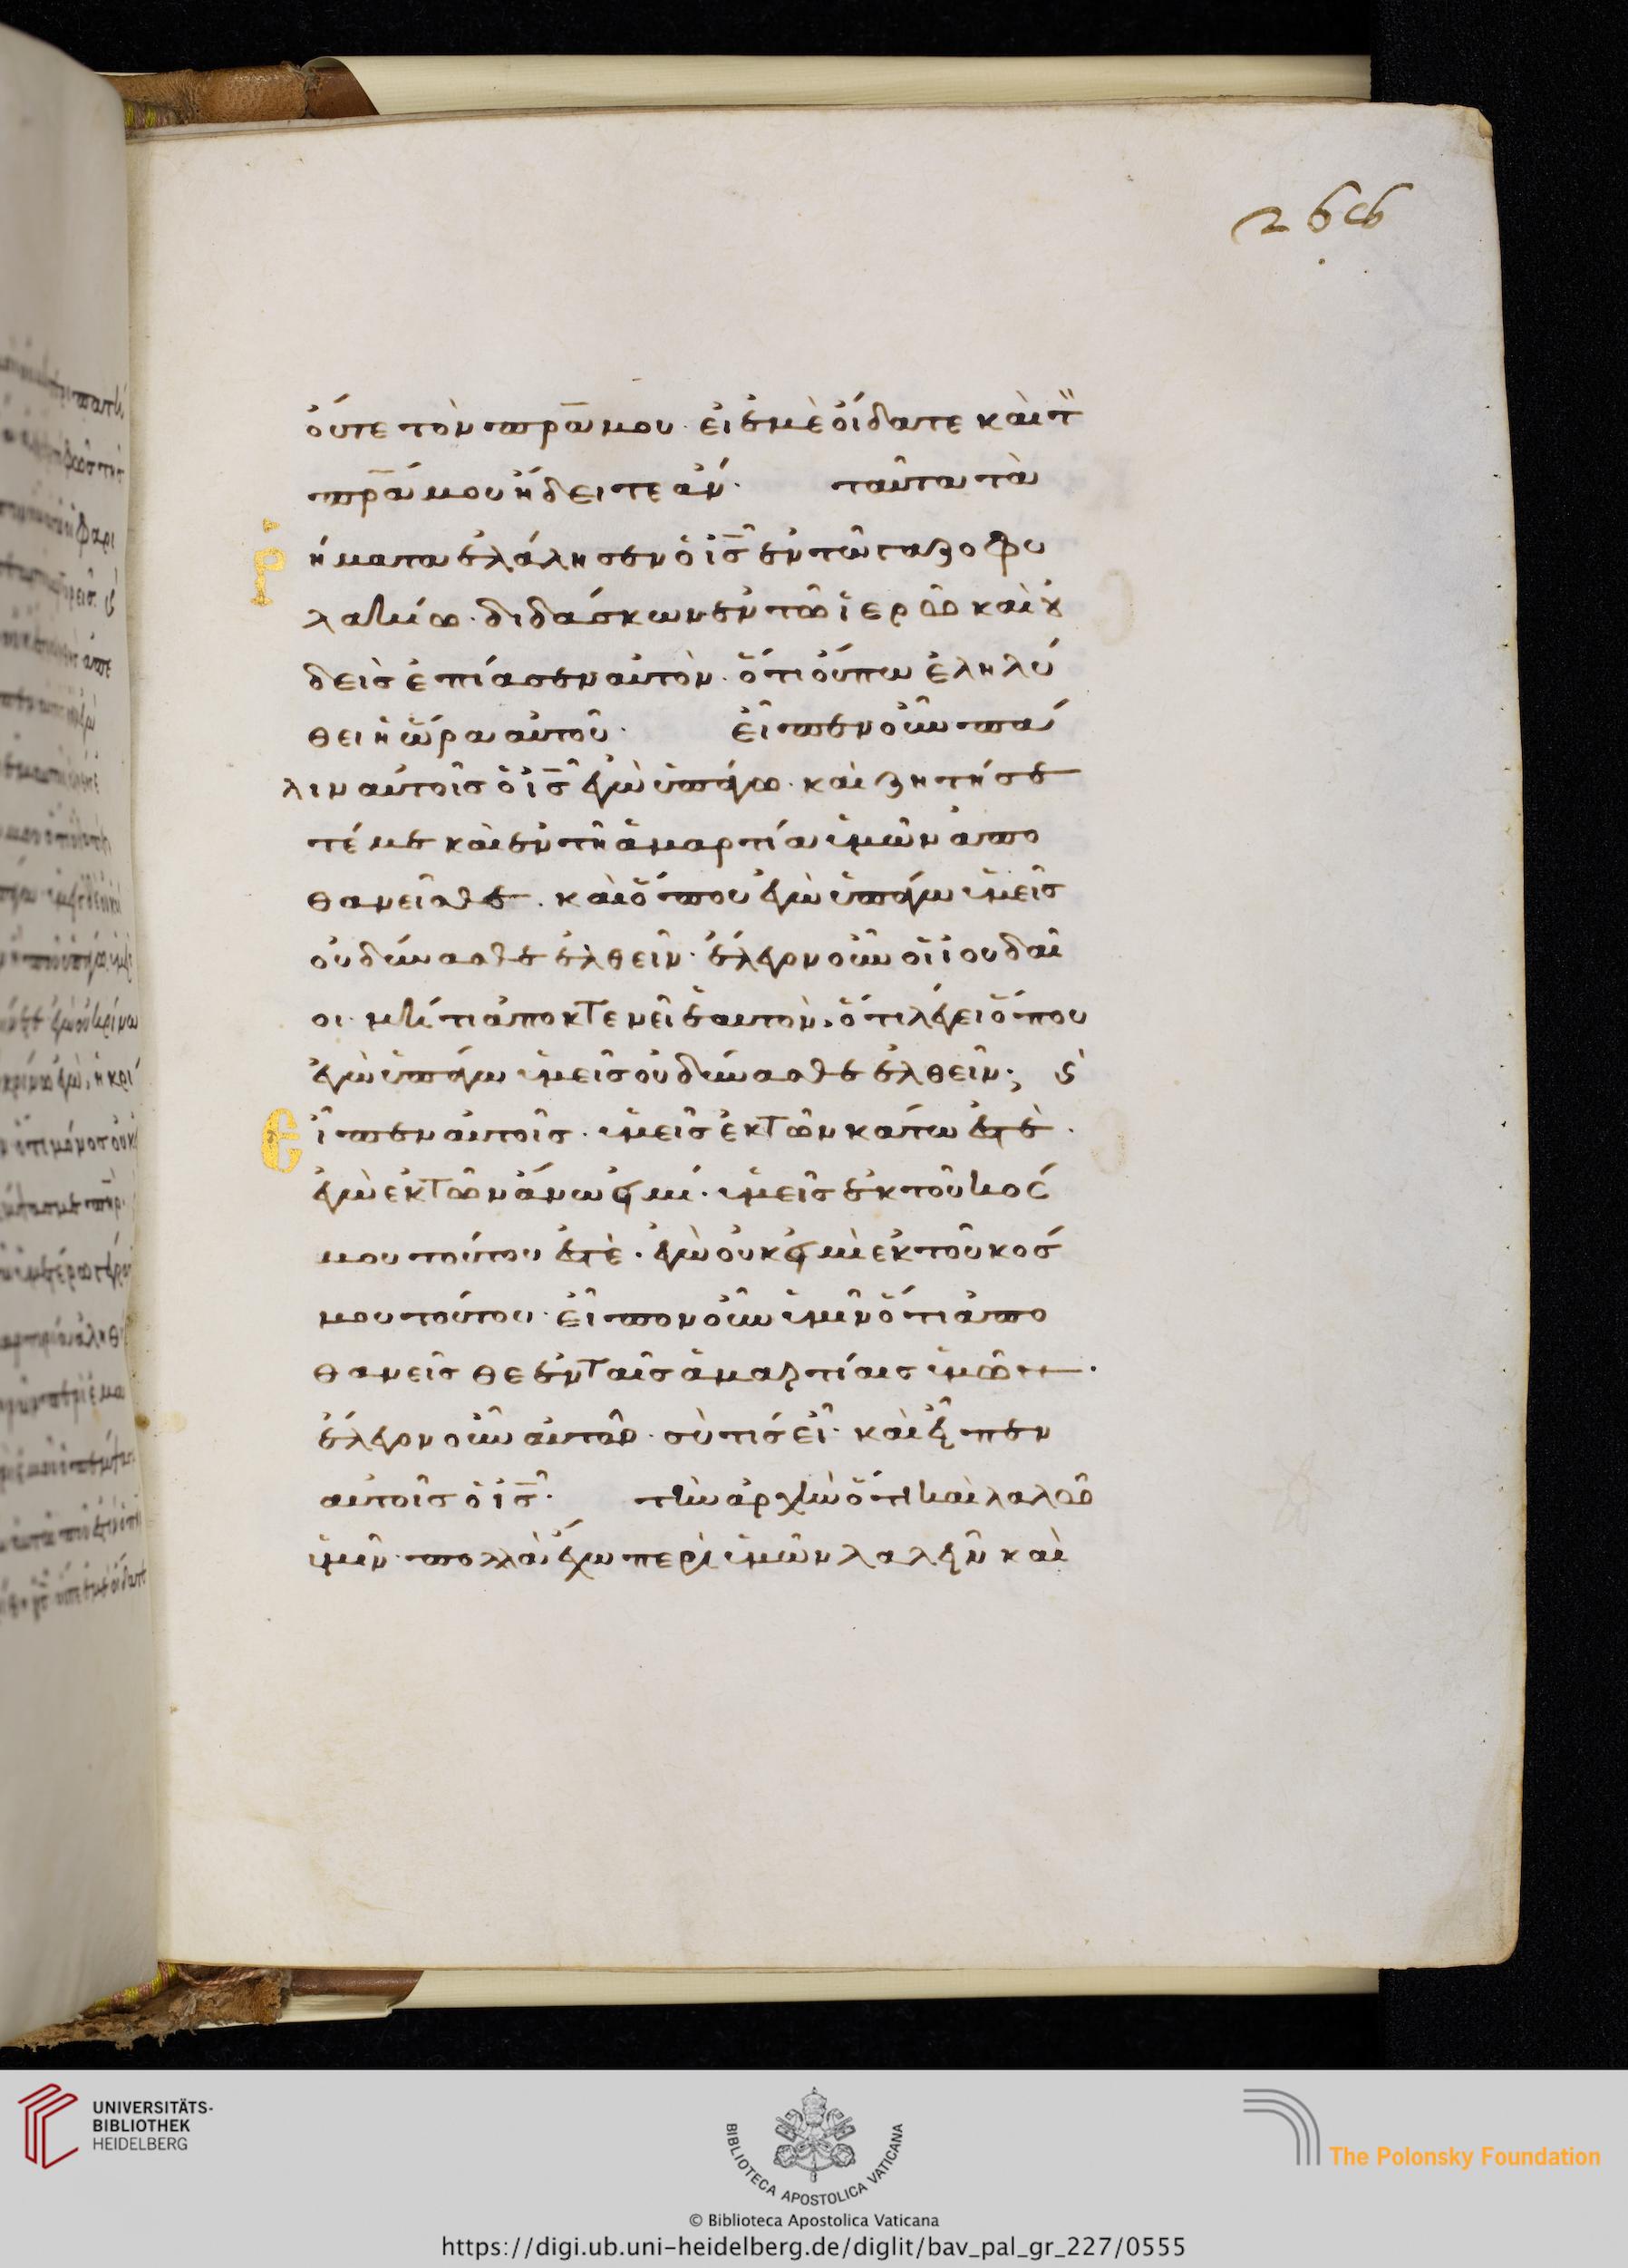 266
οὔτε τὸν πρ̅α μου. εἰ ἐμὲ οἴδατε καὶ τ̀
πρ̅α μου ἤδειτε ἄν. ταῦτα τὰ
ῥήματα ἐλάλησεν ὁ ἰς̅ ἐν τῶ γαζοφυ
λακίω. διδάσκων ἐν τῶ ἱερῶ καὶ οὐ
δεὶς ἐπίασεν αὐτὸν. ὅτι οὔπω ἐληλύ
θει ἡ ὥρα αὐτοῦ. εἶπεν οὖν πά
λιν αὐτοῖς ὁ ἰς̅ ἐγὼ ὑπάγω. καὶ ζητήσε
τέ με καὶ ἐν τῆ ἁμαρτία ὑμῶν ἀπο
θανεῖσθε. καὶ ὅπου ἐγὼ ὑπάγω ὑμεῖς
οὐ δύνασθε ἐλθεῖν. ἔλεγον οὖν οἱ ἰουδαῖ
οι. μήτι ἀποκτενεῖ ἑαυτὸν, ὅτι λέγει ὅπου
ἐγὼ ὑπάγω ὑμεῖς οὐ δύνασθε ἐλθεῖν; ϛ̀
Εἶπεν αὐτοῖς. ὑμεῖς ἐκ τῶν κάτω ἐστὲ.
ἐγὼ ἐκ τῶν ἄνω εἰμί. ὑμεῖς ἐκ τοῦ κόσ
μου τούτου ἐστὲ. ἐγὼ οὐκ εἰμὶ ἐκ τοῦ κόσ
μου τούτου. εἶπον οὖν ὑμῖν ὅτι ἀπο
θανεῖσθε ἐν ταῖς ἁμαρτίαις ὑμῶν.
ἔλεγον οὖν αὐτῶ. σὺ τίς εἶ. καὶ εἶπεν
αὐτοῖς ὁ ἰς̅. τὴν ἀρχὴν ὅ τι καὶ λαλῶ
ὑμῖν. πολλὰ ἔχω περὶ ὑμῶν λαλεῖν καὶ
UNIVERSITÄTS-
BIBLIOTHEK
HEIDELBERG
BIBLIOTECA APOSTOLICA VATICANA
The Polonsky Foundation
© Biblioteca Apostolica Vaticana
https://digi.ub.uni-heidelberg.de/diglit/bav_pal_gr_227/0555